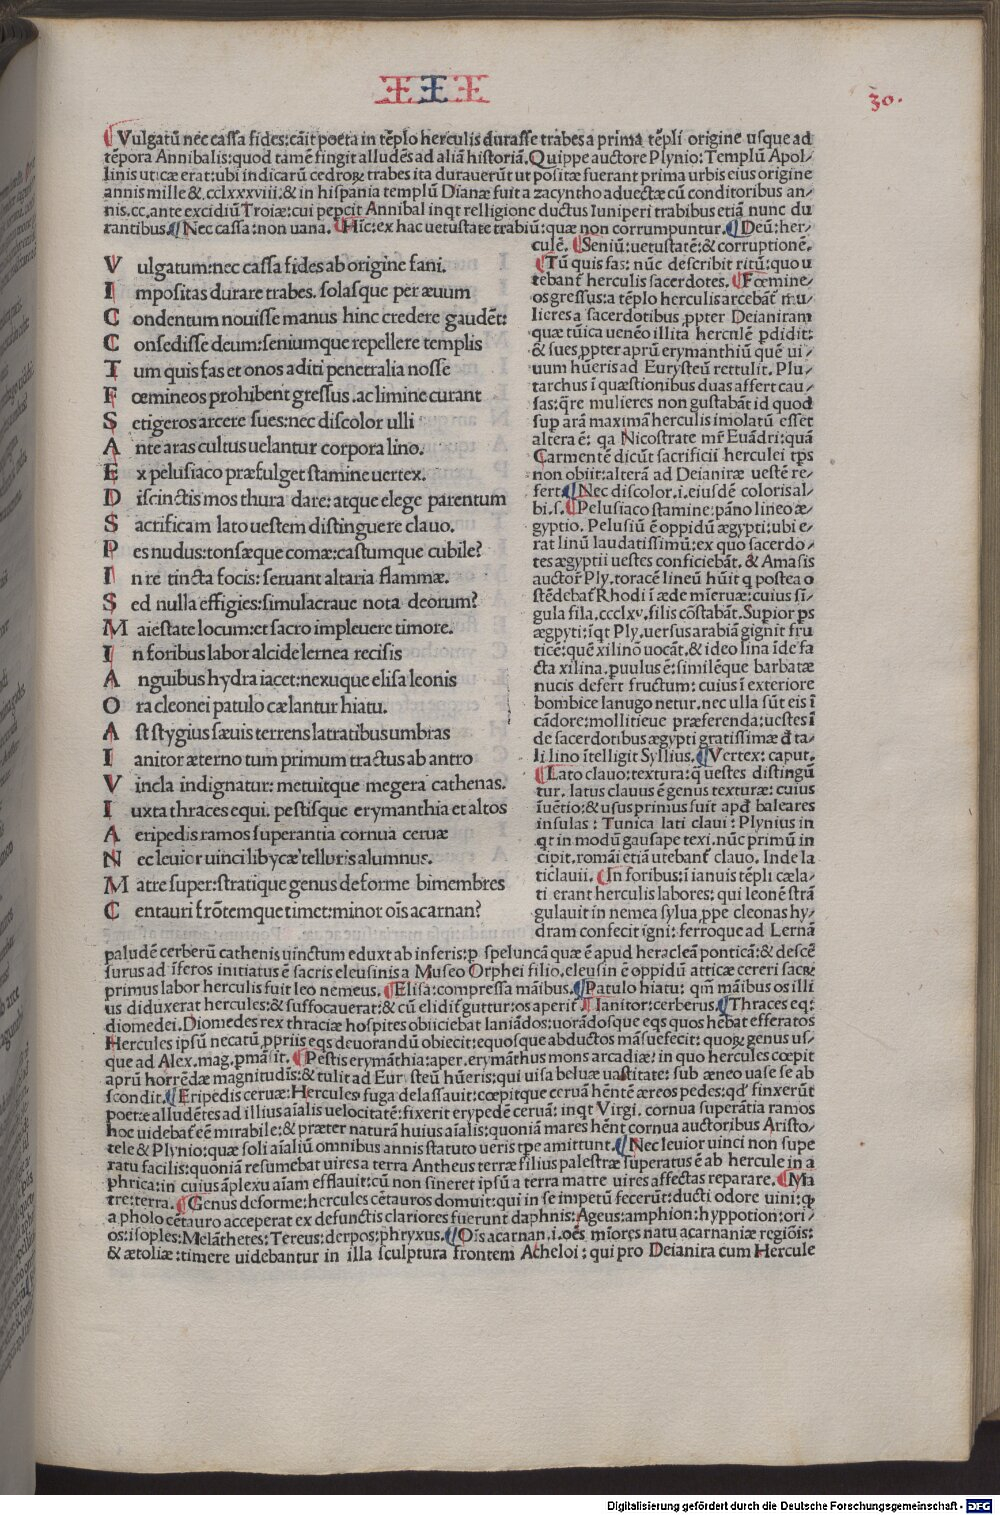 III
30.
¶Vulgatũ nec cassa fides:cãit poeta in tẽplo herculis durasse trabes a prima tẽpli origine usque ad
tẽpora Annibalis:quod tamẽ fingit alludẽs ad aliã historiã.Quippe auctore Plynio:Templũ Apol/
linis uticæ erat:ubi indicarũ cedroꝝ trabes ita durauerũt ut positæ fuerant prima urbis eius origine
annis mille &.cclxxxviii:& in hispania templũ Dianæ fuit a zacyntho aduectæ cũ conditoribus an/
nis.cc.ante excidiũ Troiæ:cui pepcit Annibal inqt relligione ductus Iuniperi trabibus etiã nunc du
rantibus.¶Nec cassa:non uana.¶Hĩc:ex hac uetustate trabiũ:quæ non corrumpuntur.¶Deũ:her/
culẽ.¶Seniũ:uetustatẽ:& corruptionẽ.
V ulgatum:nec cassa fides ab origine fani.
I mpositas durare trabes.solasque per æuum
C ondentum nouisse manus hinc credere gaudẽt:
C onsedisse deum:seniumque repellere templis
T um quis fas et onos aditi penetralia nosse
F œmineos prohibent gressus.ac limine curant
S etigeros arcere sues:nec discolor ulli
A nte aras cultus uelantur corpora lino.
E x pelusiaco præfulget stamine uertex.
D iscinctis mos thura dare:atque elege parentum
S acrificam lato uestem distinguere clauo.
P es nudus:tonsæque comæ:castumque cubile?
I n re tincta focis:seruant altaria flammæ.
S ed nulla effigies:simulacraue nota deorum?
M aiestate locum:et sacro impleuere timore.
I n foribus labor alcide lernea recisis
A nguibus hydra iacet:nexuque elisa leonis
O ra cleonei patulo cælantur hiatu.
A st stygius sæuis terrens latratibus umbras
I anitor æterno tum primum tractus ab antro
V incla indignatur:metuitque megera cathenas.
I uxta thraces equi.pestisque erymanthia et altos
A eripedis ramos superantia cornua ceruæ
N ec leuior uinci libycæ telluris alumnus.
M atre super:stratique genus deforme bimembres
C entauri frõtemque timet:minor oĩs acarnan?
¶Tũ quis fas:nũc describit ritũ:quo u
tebant̃ herculis sacerdotes.¶Fœmine/
os gressus:a tẽplo herculis arcebãt̃ mu/
lieres a sacerdotibus ꝓpter Deianiram
quæ tũica uenẽo illita herculẽ ꝑdidit:
& sues ꝓpter aprũ erymanthiũ quẽ ui/
uum hũeris ad Eurysteũ rettulit.Plu/
tarchus ĩ quæstionibus duas affert cau/
sas:q̃re mulieres non gustabãt id quod
sup arã maximã herculis imolatũ esset
altera ẽ: qa Nicostrate mr̃ Euãdri:quã
Carmentẽ dicũt sacrificii herculei tps
non obiit:alterã ad Deianiræ uestẽ re/
fert.¶Nec discolor.i.eiusdẽ coloris al/
bi.s.¶Pelusiaco stamine:pãno lineo æ/
gyptio.Pelusiũ ẽ oppidũ ægypti:ubi e/
rat linũ laudatissimũ:ex quo sacerdo/
tes ægyptii uestes conficiebãt.& Amasis
auctor̃ Ply.toracẽ lineũ hũit q postea o
stẽdebat̃ Rhodi ĩ æde mĩeruæ:cuius sĩ/
gula fila.ccclxv.filis cõstabãt.Supior ps
ægypti:iq̃t Ply.uersus arabiã gignit fru
ticẽ:quẽ xilinõ uocãt,& ideo lina ĩde fa
cta xilina.puulus ẽ:similẽque barbatæ
nucis defert fructum:cuius ĩ exteriore
bombice lanugo netur.nec ulla sũt eis ĩ
cãdore:mollitieue præferenda:uestes ĩ
de sacerdotibus ægypti gratissimæ đ ta/
li lino ĩtelligit Syllius.¶Vertex:caput.
¶Lato clauo:textura:q̃ uestes distingũ
tur.latus clauus ẽ genus texturæ:cuius
ĩuẽtio:& usus primus fuit apđ baleares
insulas:Tunica lati claui:Plynius in
qt in modũ gausape texi.nũc primũ in
cipit.romãi etiã utebant̃ clauo.Inde la
ticlauii.¶In foribus:ĩ ianuis tẽpli cæla/
ti erant herculis labores:qui leonẽ strã
gulauit in nemea sylua ꝓpe cleonas hy/
dram confecit igni:ferroque ad Lernã
paludẽ cerberũ cathenis uĩnctum eduxt ab inferis:ꝑ speluncã quæ ẽ apud heracleã ponticã:& descẽ
surus ad ĩferos initiatus ẽ sacris eleusinis a Museo Orphei filio.eleusin ẽ oppidũ atticæ cereri sacrũ
primus labor herculis fuit leo nemeus.¶Elisa:compressa mãibus.¶Patulo hiatu: qm̃ mãibus os illi
us diduxerat hercules:& suffocauerat:& cũ elidit̃ guttur:os aperit̃ ¶Ianitor:cerberus.¶Thraces eq:
diomedei.Diomedes rex thraciæ hospites obiiciebat laniãdos:uorãdosque eqs quos hẽbat efferatos
Hercules ipsũ necatũ ꝓpriis eqs deuorandũ obiecit:equosque abductos mãsuefecit:quoꝝ genus us/
que ad Alex.mag.ꝑmãsit.¶Pestis erymãthia:aper.erymãthus mons arcadiæ:in quo hercules cœpit
aprũ horrẽdæ magnitudĩs:& tulit ad Euristeũ hũeris:qui uisa beluæ uastitate:sub æneo uase se ab
scondit.¶Eripedis ceruæ:Hercules fuga delassauit:cœpitque ceruã hẽntẽ æreos pedes:qđ finxerũt
poetæ alludẽtes ad illius aĩalis uelocitatẽ:fixerit erypedẽ ceruã:inqt Virgi.cornua superãtia ramos
hoc uidebat̃ eẽ mirabile:& præter naturã huius aĩalis:quoniã mares hẽnt cornua auctoribus Aristo/
tele & Plynio:quæ soli aĩaliũ omnibus annis statuto ueris tp̃e amittunt.¶Nec leuior uinci non supe
ratu facilis:quoniã resumebat uires a terra Antheus terræ filius palestræ superatus ẽ ab hercule in a
phrica:in cuius ãplexu aĩam efflauit:cũ non sineret ipsũ a terra matre uires affectas reparare.¶Ma
tre:terra.¶Genus deforme:hercules cẽtauros domuit:qui in se impetũ fecerũt:ducti odore uini:q
a pholo cẽtauro acceperat ex defunctis clariores fuerunt daphnis:Ageus:amphion:hyppotion:ori/
os:isoples:Melãthetes:Tereus:derpos:phryxus.¶Oĩs acarnan.i.oẽs miores natu acarnaniæ regiõis:
& ætoliæ:timere uidebantur in illa sculptura frontem Acheloi:qui pro Deianira cum Hercule
Digitalisierung gefördert durch die Deutsche Forschungsgemeinschaft - DFG